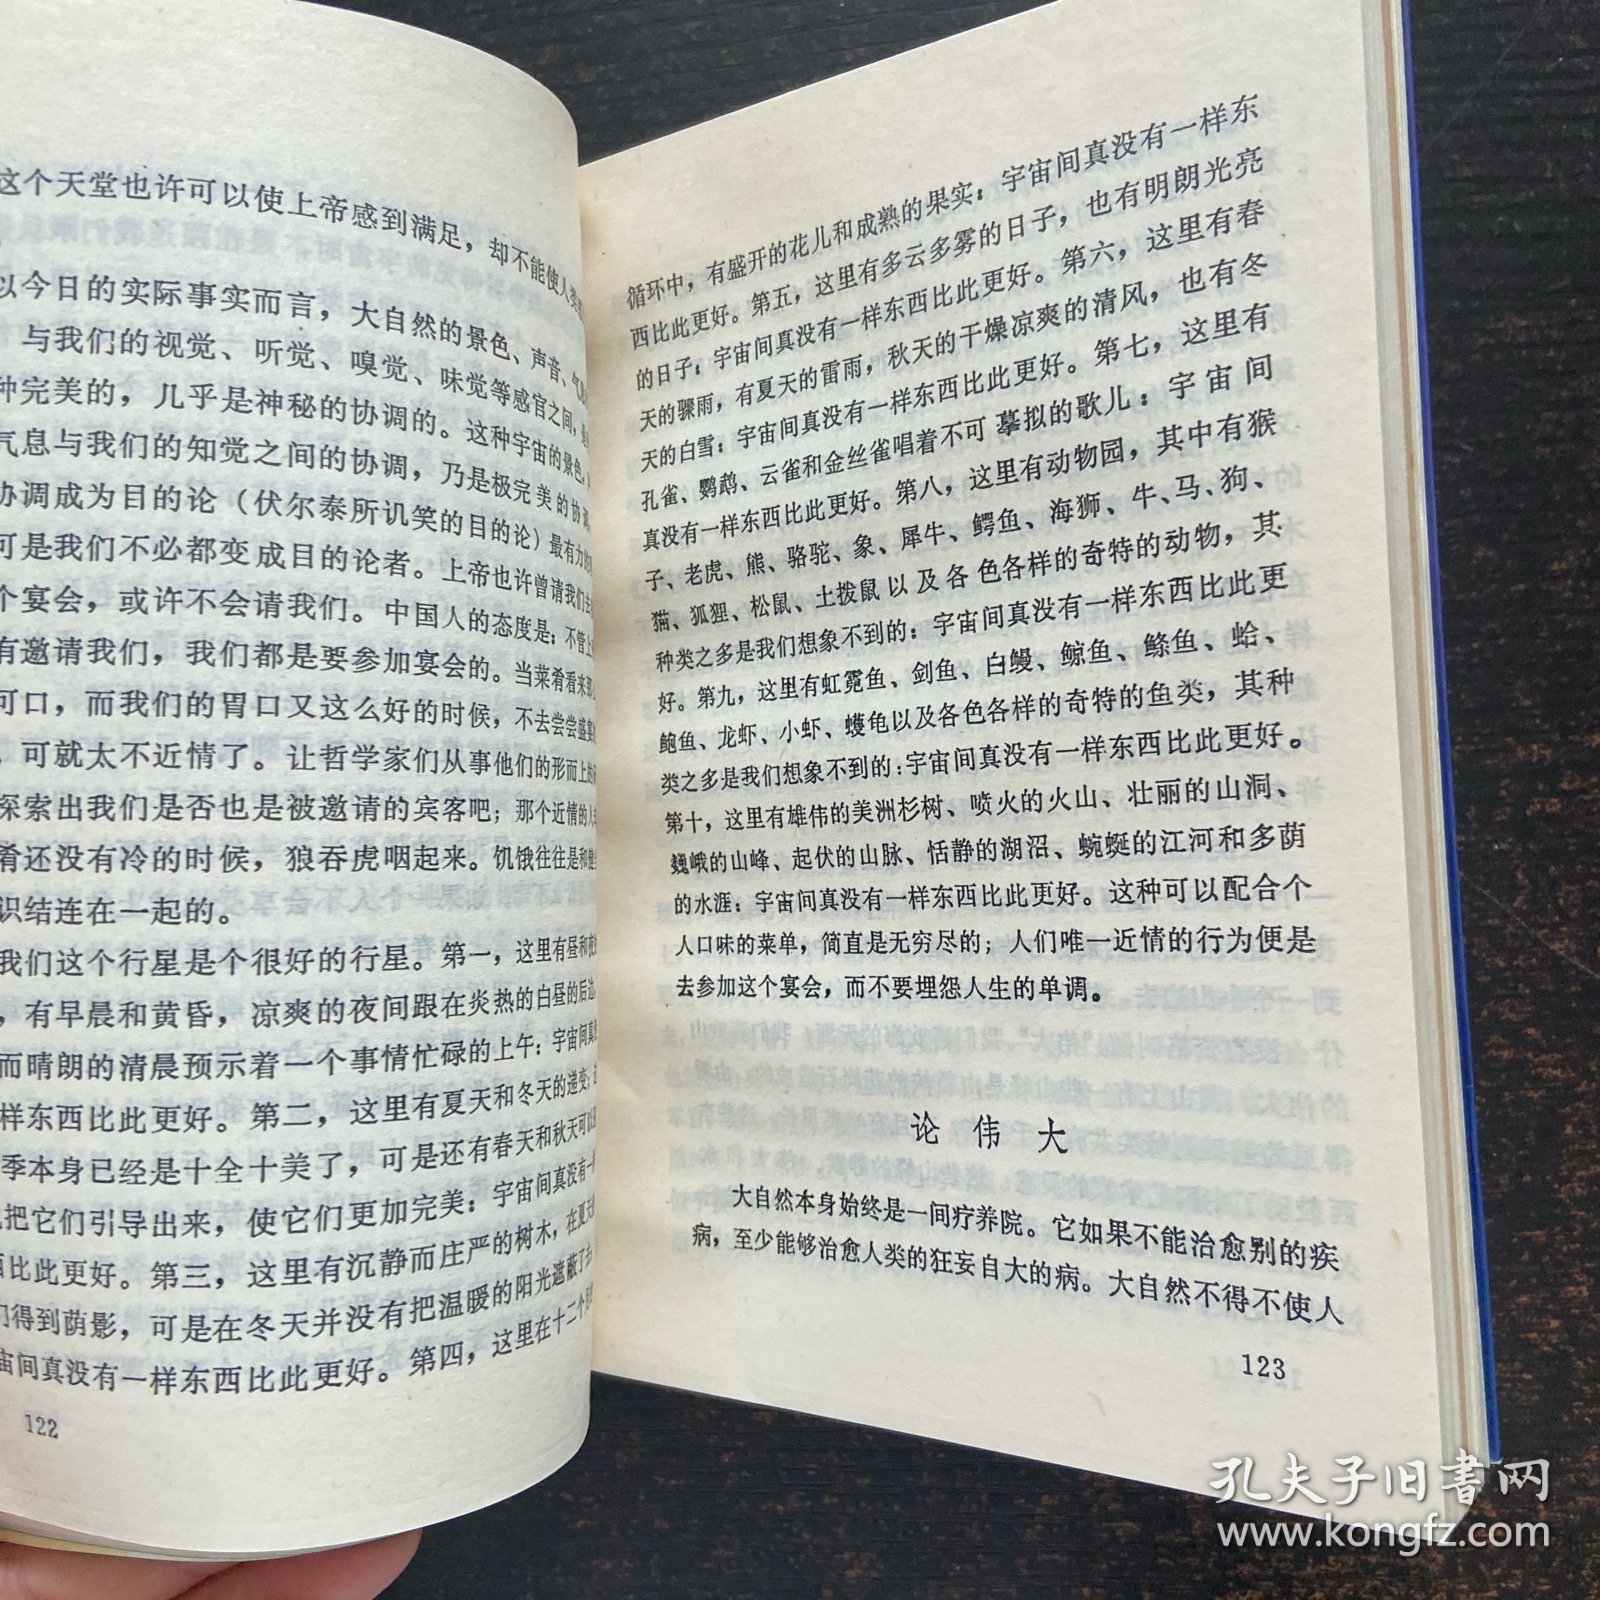 这个天堂也许可以使上帝感到满足，却不能使人类
以今日的实际事实而言，大自然的景色、声音、气
与我们的视觉、听觉、嗅觉、味觉等感官之间，
种完美的，几乎是神秘的协调的。这种宇宙的景色、
气息与我们的知觉之间的协调，乃是极完美的协
协调成为目的论（伏尔泰所讥笑的目的论）最有力的
可是我们不必都变成目的论者。上帝也许曾请我们去
个宴会，或许不会请我们。中国人的态度是：不管上
有邀请我们，我们都是要参加宴会的。当菜肴看来那
可口，而我们的胃口又这么好的时候，不去尝尝盛
，可就太不近情了。让哲学家们从事他们的形而上的
探索出我们是否也是被邀请的宾客吧；那个近情的人
肴还没有冷的时候，狼吞虎咽起来。饥饿往往是和健
识结连在一起的。
我们这个行星是个很好的行星。第一，这里有昼和夜
，有早晨和黄昏，凉爽的夜间跟在炎热的白昼的后边，
而晴朗的清晨预示着一个事情忙碌的上午：宇宙间真
样东西比此更好。第二，这里有夏天和冬天的递变；
季本身已经是十全十美了，可是还有春天和秋天可以
把它们引导出来，使它们更加完美：宇宙间真没有一
西比此更好。第三，这里有沉静而庄严的树木，在夏天
们得到荫影，可是在冬天并没有把温暖的阳光遮蔽了去
宙间真没有一样东西比此更好。第四，这里在十二个
122
循环中，有盛开的花儿和成熟的果实：宇宙间真没有一样东
西比此更好。第五，这里有多云多雾的日子，也有明朗光亮
的日子：宇宙间真没有一样东西比此更好。第六，这里有春
天的骤雨，有夏天的雷雨，秋天的干燥凉爽的清风，也有冬
天的白雪：宇宙间真没有一样东西比此更好。第七，这里有
孔雀、鹦鹉、云雀和金丝雀唱着不可摹拟的歌儿：宇宙间
真没有一样东西比此更好。第八，这里有动物园，其中有猴
子、老虎、熊、骆驼、象、犀牛、鳄鱼、海狮、牛、马、狗、
猫、狐狸、松鼠、土拨鼠以及各色各样的奇特的动物，其
种类之多是我们想象不到的：宇宙间真没有一样东西比此更
好。第九，这里有虹霓鱼、剑鱼、白鳗、鲸鱼、鲦鱼、蛤、
鲍鱼、龙虾、小虾、蠖龟以及各色各样的奇特的鱼类，其种
类之多是我们想象不到的：宇宙间真没有一样东西比此更好。
第十，这里有雄伟的美洲杉树、喷火的火山、壮丽的山洞、
巍峨的山峰、起伏的山脉、恬静的湖沼、蜿蜒的江河和多荫
的水涯：宇宙间真没有一样东西比此更好。这种可以配合个
人口味的菜单，简直是无穷尽的；人们唯一近情的行为便是
去参加这个宴会，而不要埋怨人生的单调。
论伟大
大自然本身始终是一间疗养院。它如果不能治愈别的疾
病，至少能够治愈人类的狂妄自大的病。大自然不得不使人
123
孔夫子旧书网
www.kongfz.com